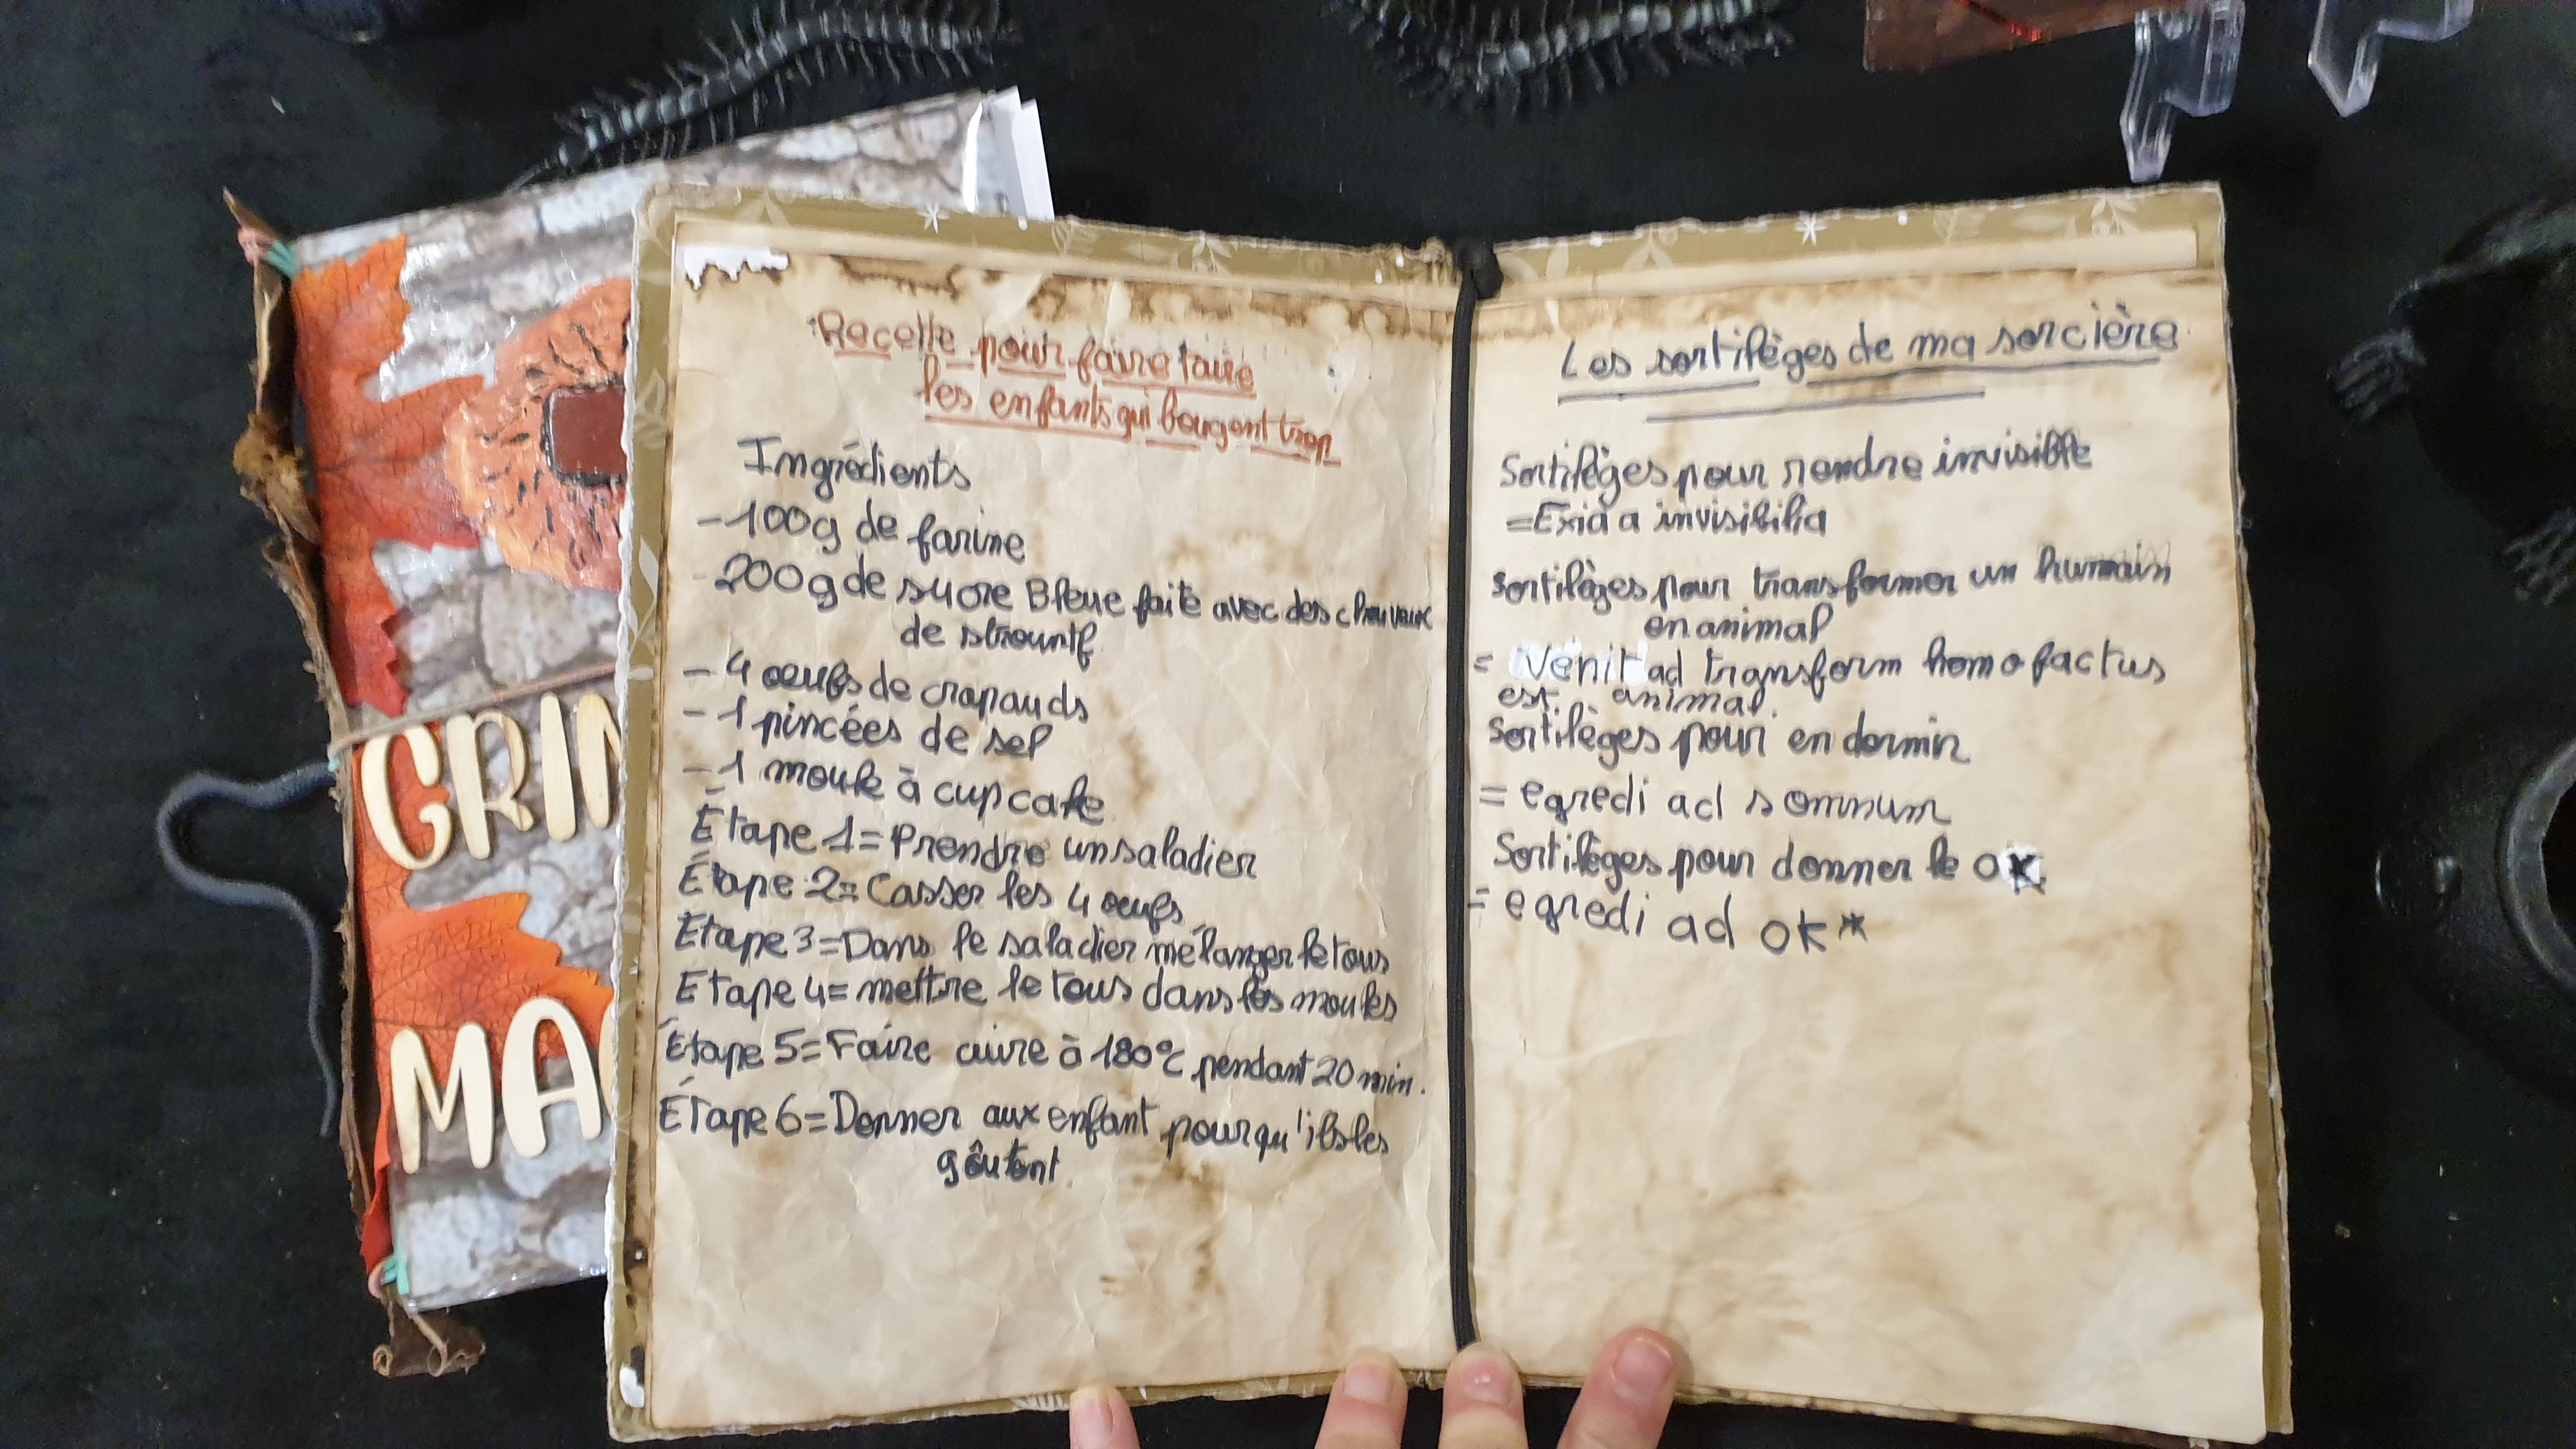 GRIM
MA
Recette pour faire taire
les enfants qui bougent trop
Ingrédients
- 100g de farine
- 200g de sucre Bleue faite avec des chouveux
de strountf
- 4 oeufs de crapauds
- 1 pincées de sel
- 1 moule à cupcake
Étape 1 = Prendre un saladier
Étape 2 = Casser les 4 oeufs
Étape 3 = Dans le saladier mélanger le tous
Etape 4 = mettre le tous dans les moules
Étape 5 = Faire cuire à 180°C pendant 20 min.
Étape 6 = Donner aux enfant pour qu'ils les
goûtent.
Les sortilèges de ma sorcière
Sortilèges pour rendre invisible
= Exia a invisibilia
Sortilèges pour transformer un humain
en animal
= Venit ad transform homo factus
est animal.
Sortilèges pour endormir
= egredi ad somnum
Sortilèges pour donner le ok
= egredi ad ok*